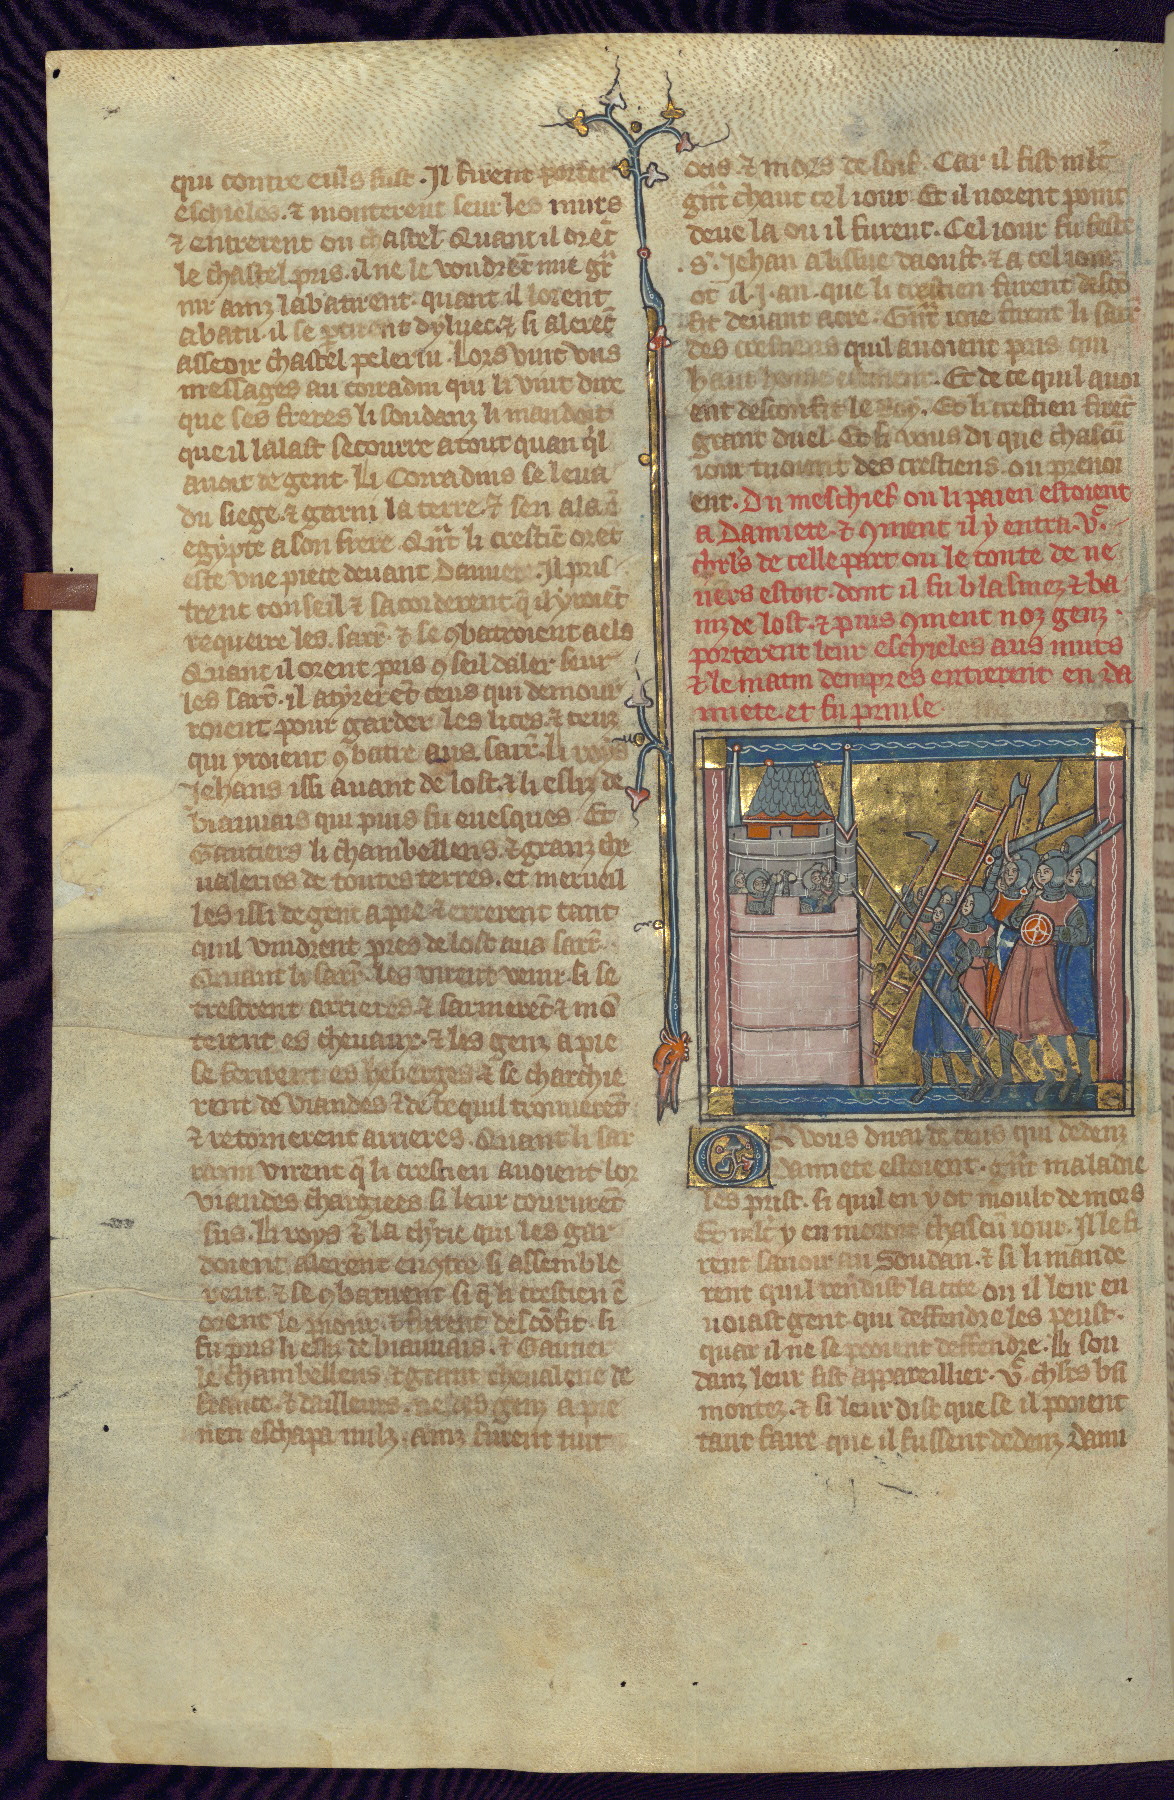 qui contre euls fust. Il firent porter
eschieles. ⁊ monterent seur les murs
⁊ entrerent ou chastel. Quant il orēt
le chastel pris. il ne le voudrēt mie
ainz labatirent. quant il lorent
abatu. il se ꝑtirent diluec. ⁊ si alerēt
asseoir chastel pelerin. Lors vint vns
messages au corradin qui li vint dire
que ses freres li soudanz li mandoit
que il lalast secourre a tout quan q̇l
auoit de gent. Li Corradins se leua
du siege. ⁊ garni la terre. ⁊ sen ala ē
egypte a son frere. Qn̄t li crestiē orēt
este vne piece deuant Damiete. Il pris
trent conseil ⁊ sacorderent. q̄ il yroiēt
requerre les. sarr̄. ⁊ se ꝯbatroient a els
Quant il orent pris ꝯseil daler seur
les sarr̄. il atyrerēt ceus qui demour
roient pour garder les lices. ⁊ ceuz
qui yroient ꝯbatre aus sarr̄. li roys
Jehans issi auant de lost. ⁊ li esliz de
biauuais qui puis fu euesques. Et
Gautiers li chambellens. ⁊ granz che
ualeries de toutes terres. et merueil
les issi de gent a pie ⁊ errerent tant
quil vindrent pres de lost aus sarr̄.
Quant li sarr̄. les virent venir. si se
trestrent arrieres. ⁊ sarmerēt ⁊ mō
terent es cheuaux. ⁊ les genz a pie
se ferirent es heberges ⁊ se charchie
rent de viandes ⁊ de ce quil trouuerēt
⁊ retornerent arrieres. Quant li sar
razin virent q̄ li crestien auoient lor
viandes chargiees si leur coururēt
sus. Li roys ⁊ la ch'rie qui les gar
doient alerent encōtre. si assemble
rent. ⁊ se ꝯbatirent si q̄ li crestien ē
orent le pieur. ⁊ furent descōfit. si
fu pris li esliz de biauuais. ⁊ Gautier
le chambellens. ⁊ grant cheualerie de
france. ⁊ dailleurs. ne des genz a pie
nen eschapa nulz. ainz furent tuit
ocis ⁊ mors de soif. Car il fist mlt̄
grāt chaut cel iour. Et il norent point
deue la ou il furent. Cel iour fu feste
S'. Jehan a lissue daoust. ⁊ a cel iour
ot il .j. an. que li crestien furent descō
fit deuant acre. Grāt ioie firent li sarr̄
des crestiens quil auoient pris
haut home estoient. Et de ce quil auoi
ent desconfit le Roy. Et li crestien firēt
grant duel. Et si vous di que chascū
iour tuoient des crestiens. ou prenoi
ent. Du meschief ou li paien estoient
a Damiete. ⁊ ꝯment il y entra. v.c
ch'rl's de celle part ou le conte de ne
uers estoit. dont il fu blasmez ⁊ ba
niz de lost. ⁊ puis ꝯment noz genz.
porterent leur eschieles aus murs
⁊ le matin dempres entrerent en da
miete. et fu prinse
Or vous dirai de ceus qui dedenz
damiete estoient. grāt maladie
les prist. si quil en y ot moult de mors
Et mlt̄ y en moroit chascū iour. Il le fi
rent sauoir au Soudan. ⁊ si li mande
rent quil rendist la cite ou il leur en
uoiast gent qui deffendre les peust.
quar il ne se pooient deffendre. Li sou
danz leur fist appareillier. v.c ch'l's bn̄
montez. ⁊ si leur dist que se il pooient
tant faire que il fussent dedenz Dami